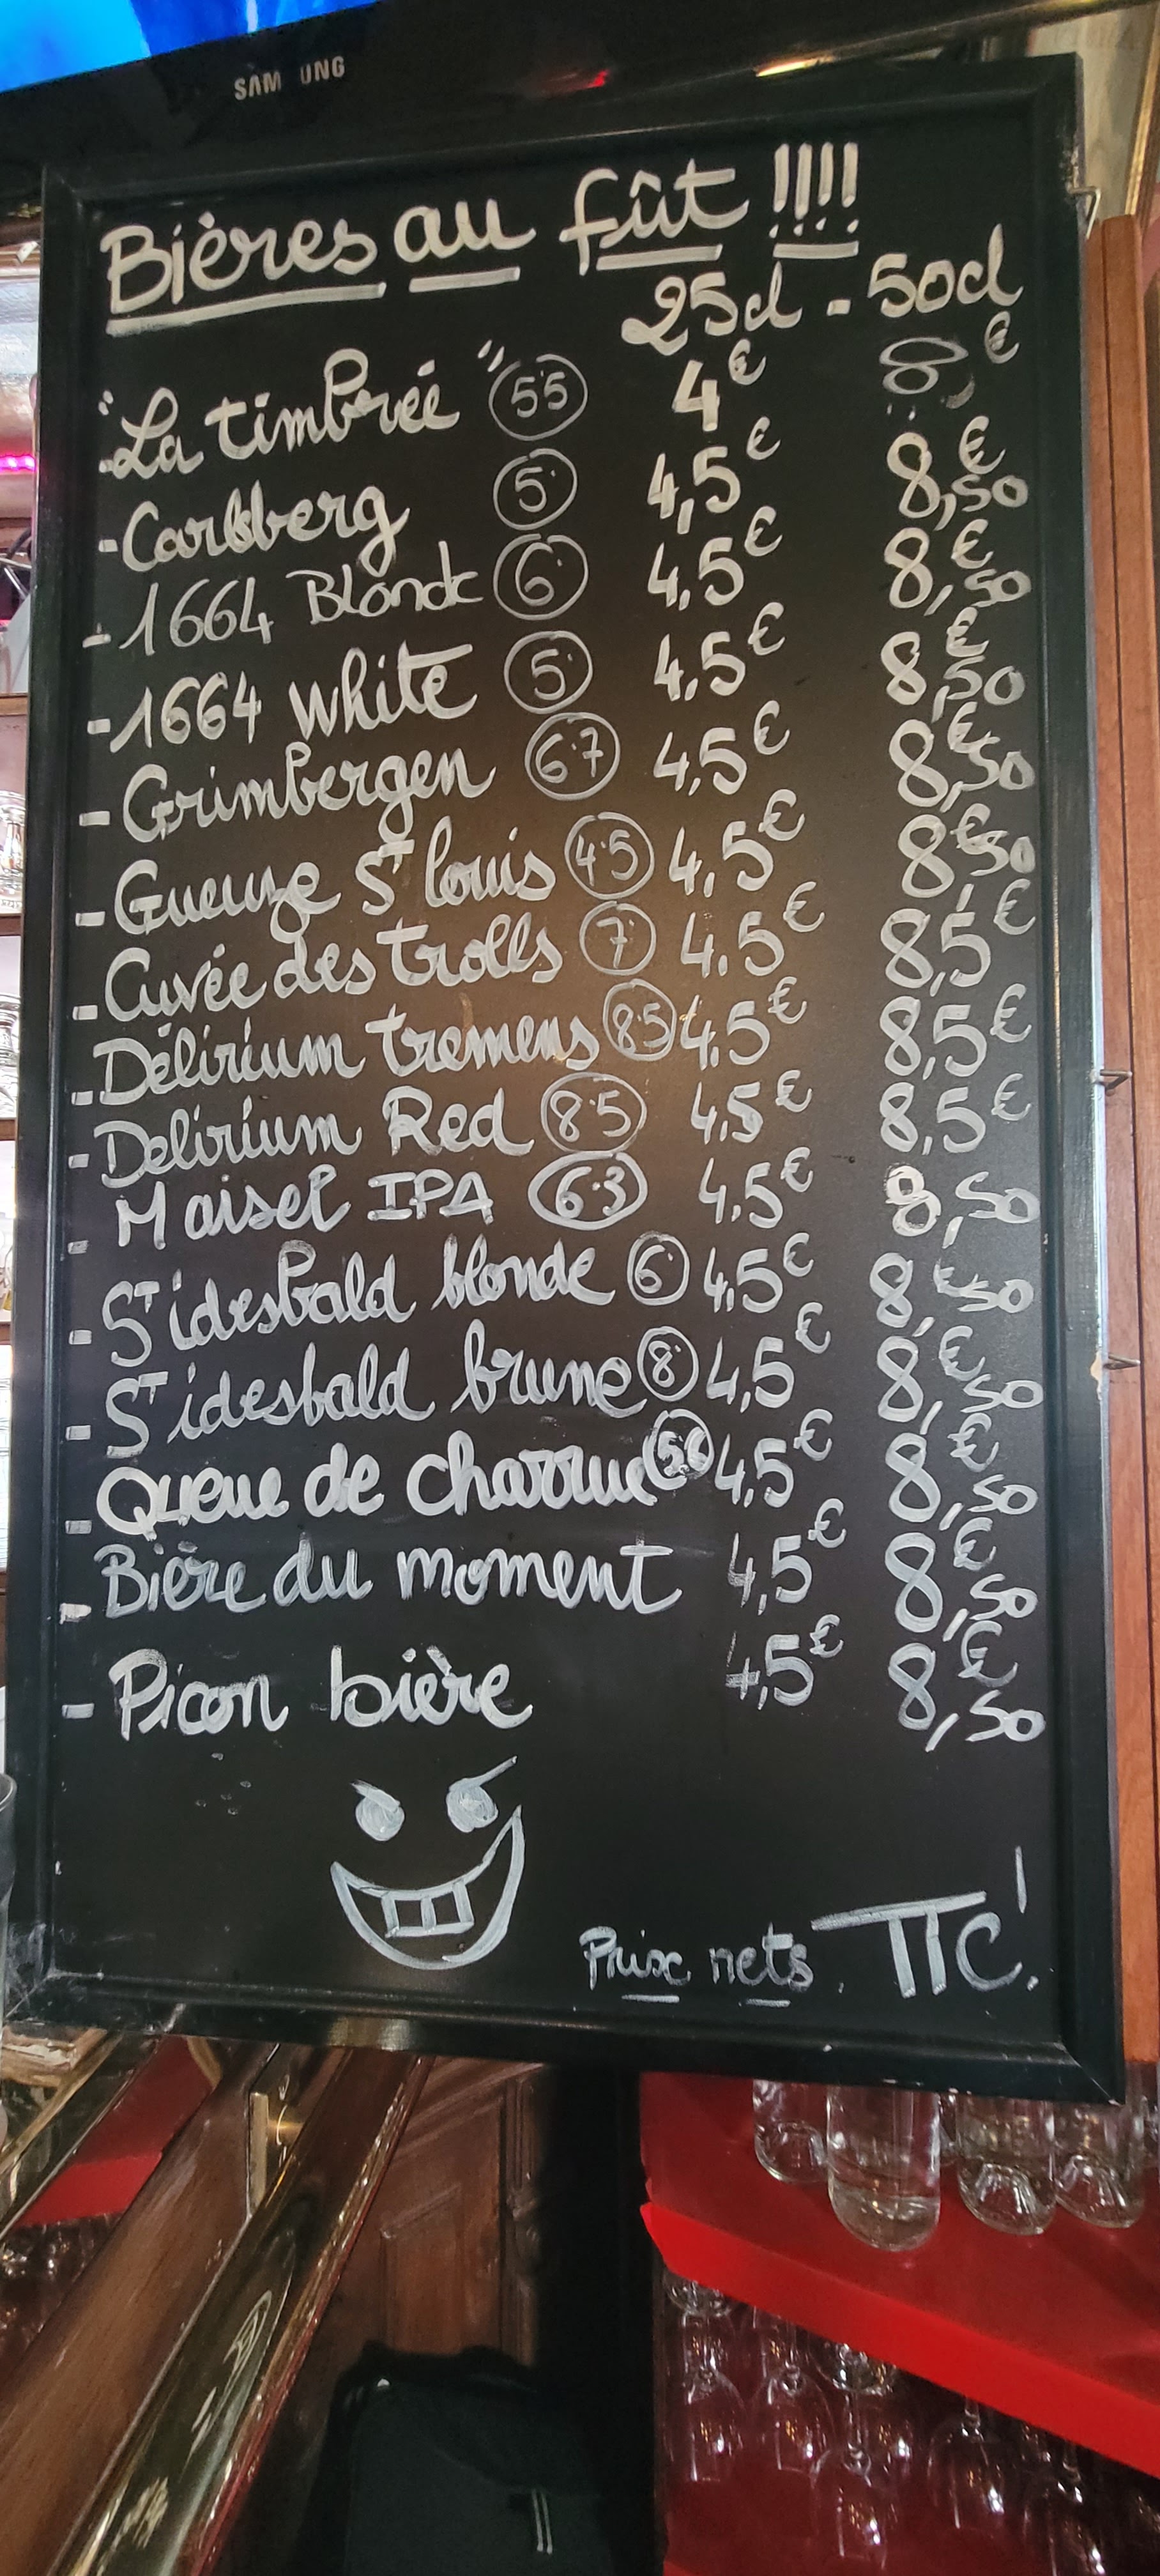 SAMSUNG
Bières au fût !!!!
25cl - 50cl
"La timbrée" 5°5 4€ 8€
- Carlsberg 5° 4,5€ 8,50€
- 1664 Blonde 6° 4,5€ 8,50€
- 1664 White 5° 4,5€ 8,50€
- Grimbergen 6°7 4,5€ 8,50€
- Gueuze St louis 4°5 4,5€ 8,50€
- Cuvée des trolls 7° 4,5€ 8,5€
- Délirium tremens 8°5 4,5€ 8,5€
- Delirium Red 8°5 4,5€ 8,5€
- Maisel IPA 6°3 4,5€ 8,50
- St idesbald blonde 6° 4,5€ 8,50€
- St idesbald brune 8° 4,5€ 8,50€
- Queue de charrue 4,5€ 8,50€
- Bière du moment 4,5€ 8,50€
- Picon bière 4,5€ 8,50€
Prix nets. TTC!